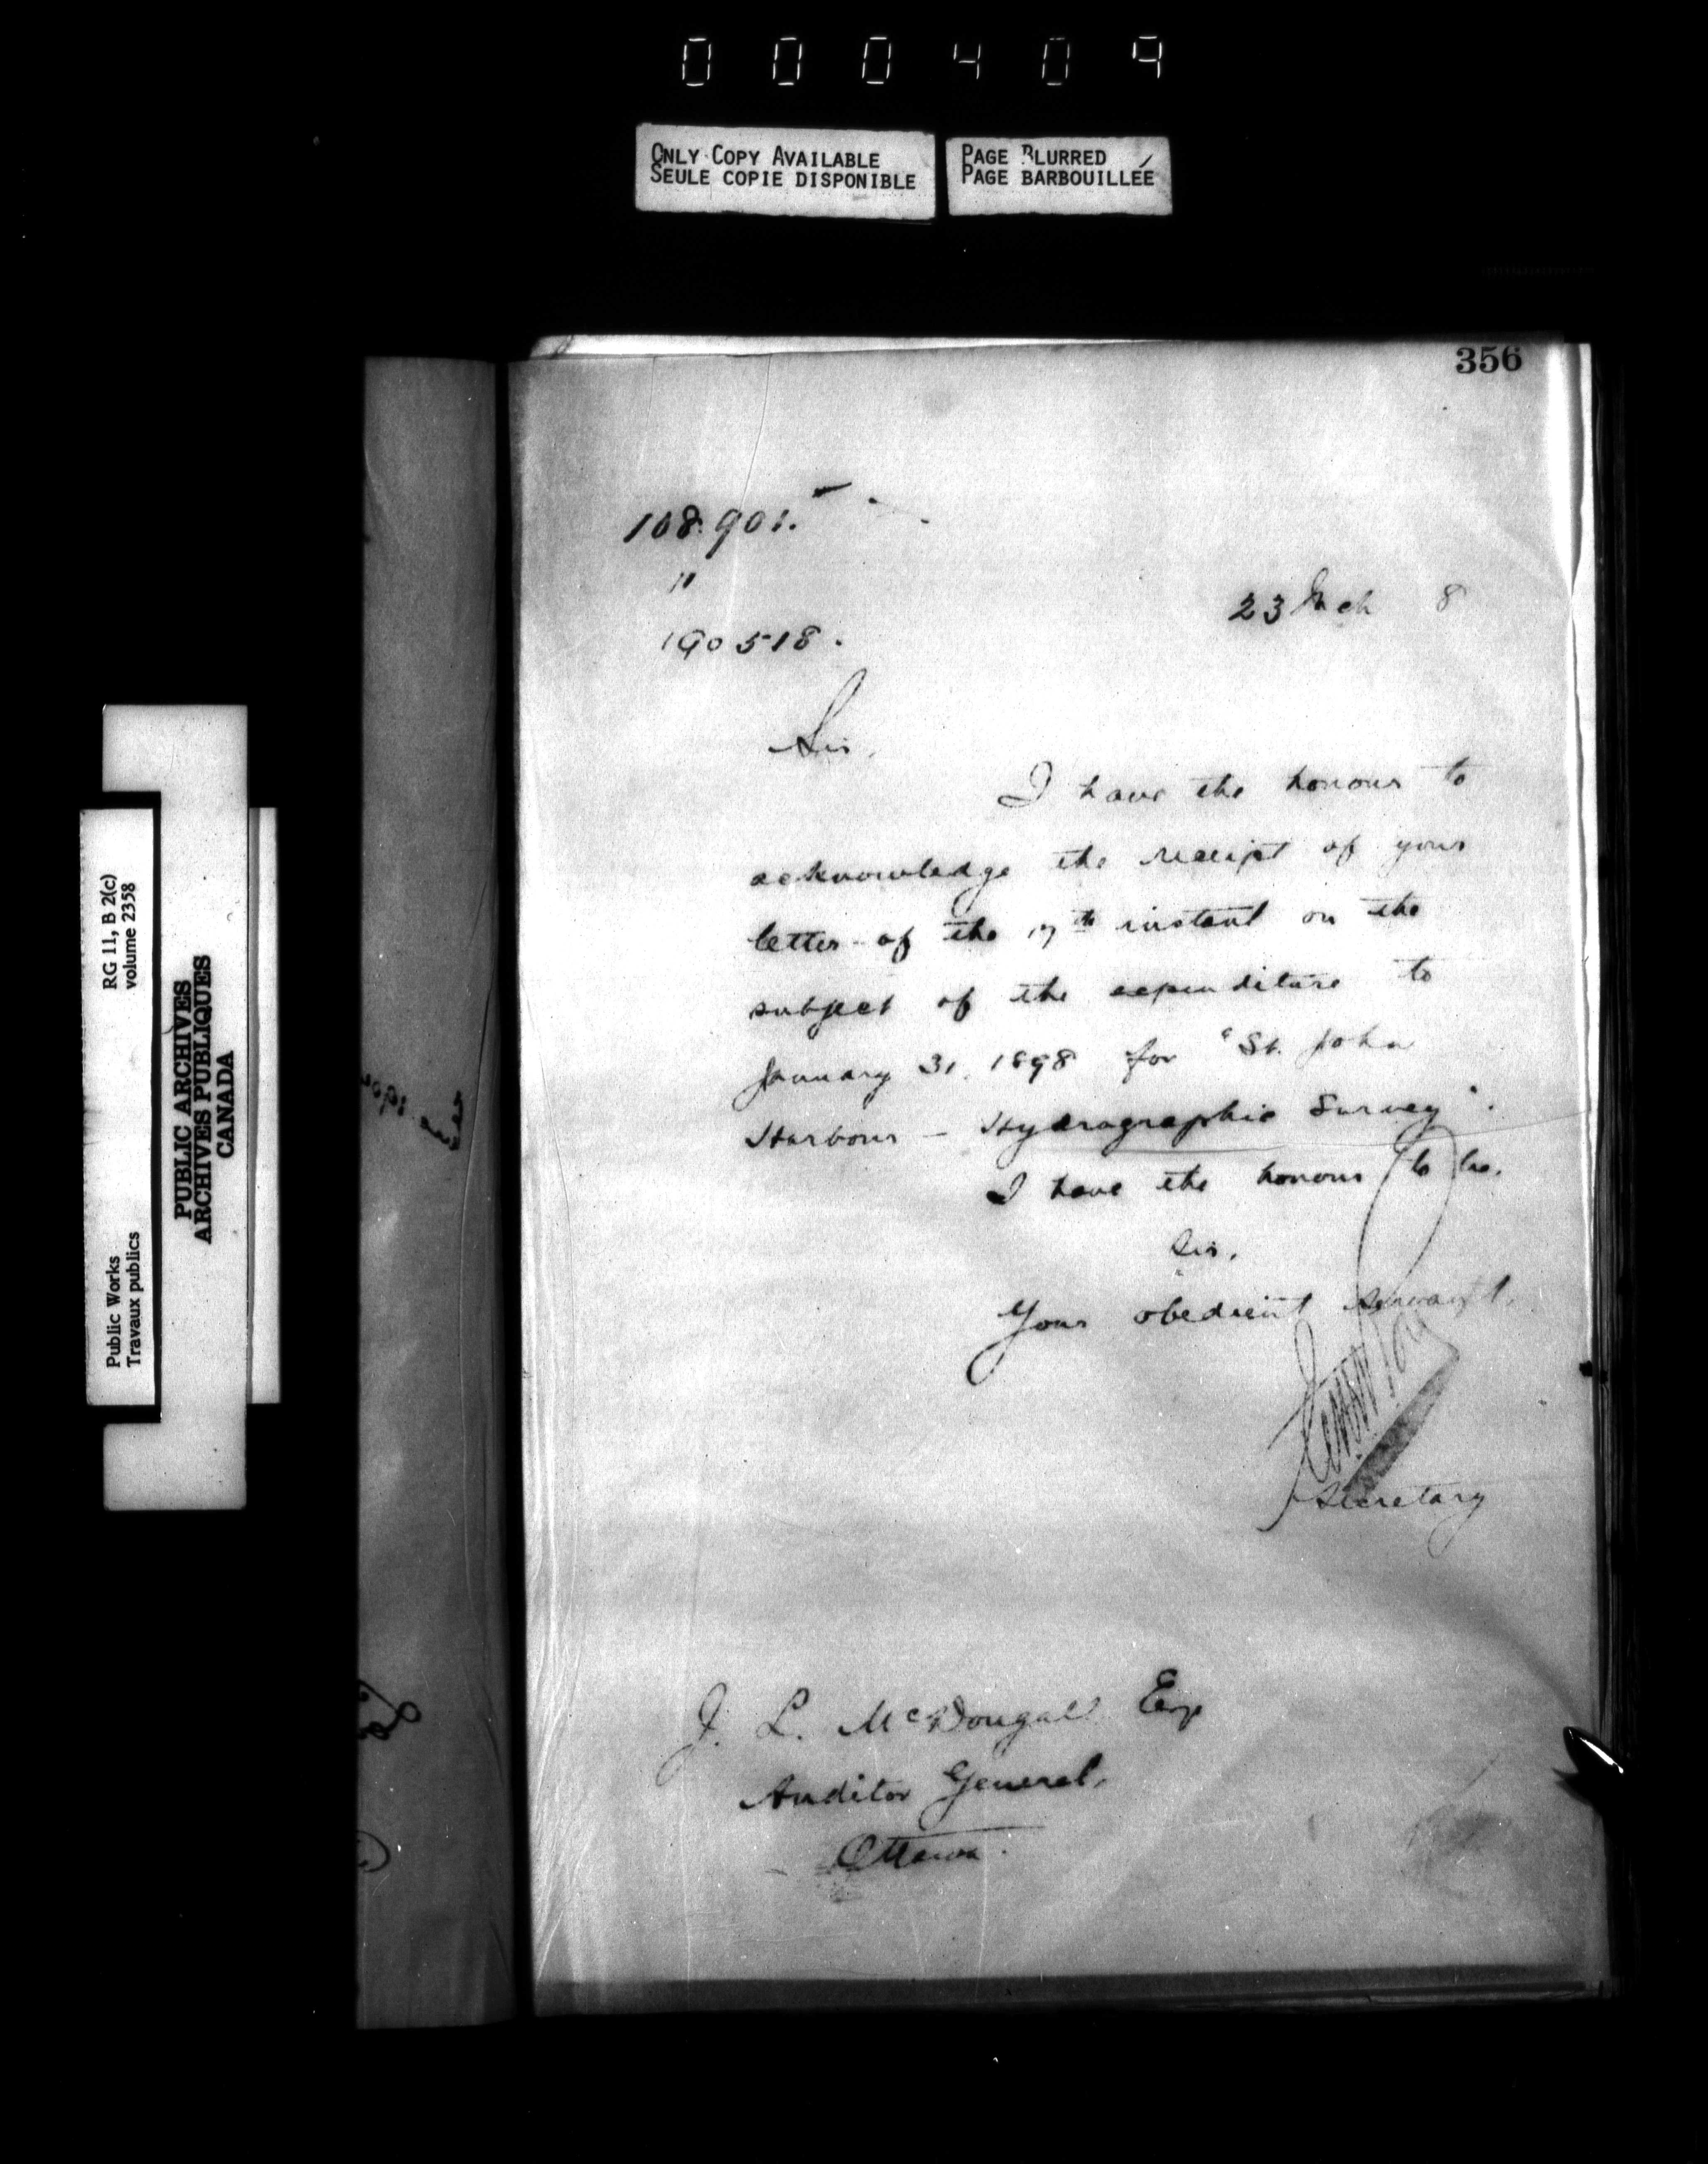 000409
ONLY COPY AVAILABLE
SEULE COPIE DISPONIBLE
PAGE BLURRED
PAGE BARBOUILLÉE
356
108.901.
"
190518.
23 Mch 8
Sir,
I have the honour to
acknowledge the receipt of your
letter of the 17th instant on the
subject of the expenditure to
January 31, 1898 for "St. John
Harbour - Hydrographic Survey".
I have the honour to be,
Sir,
Your obedient servant,
Secretary
J. L. McDougall Esq
Auditor General,
Ottawa.
RG 11, B 2(c)
volume 2358
Public Works
Travaux publics
PUBLIC ARCHIVES
ARCHIVES PUBLIQUES
CANADA